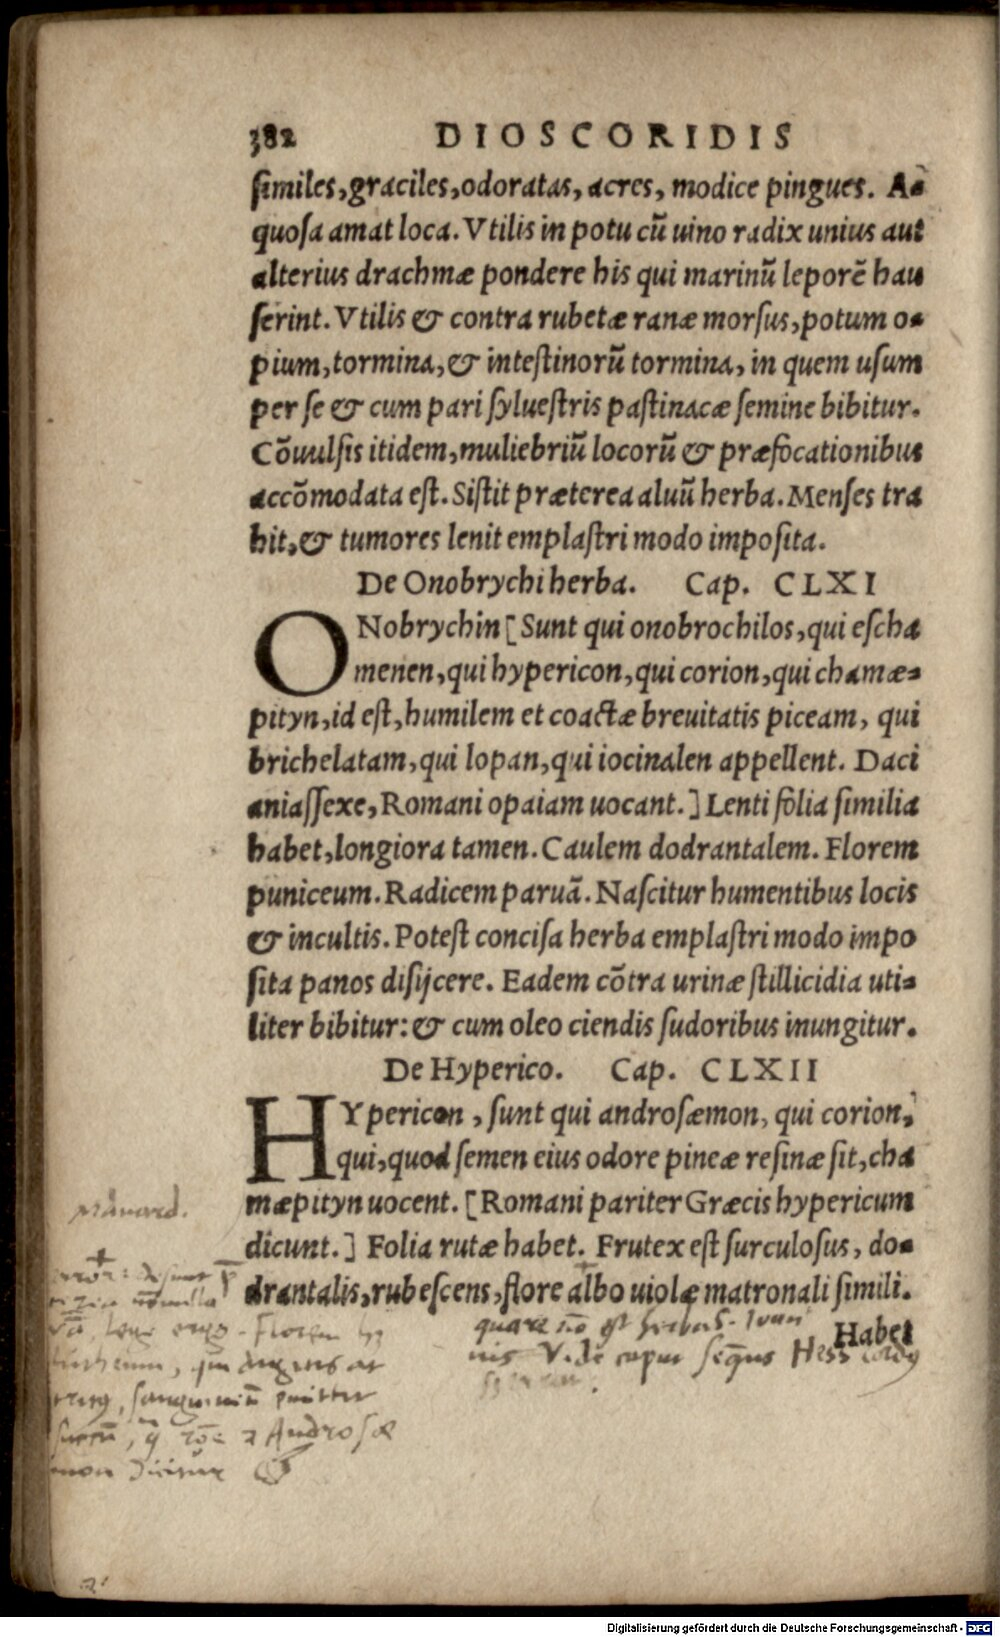 382 DIOSCORIDIS
similes, graciles, odoratas, acres, modice pingues. A-
quosa amat loca. Vtilis in potu cũ uino radix unius aut
alterius drachmæ pondere his qui marinũ leporẽ hau
serint. Vtilis & contra rubetæ ranæ morsus, potum o-
pium, tormina, & intestinorũ tormina, in quem usum
per se & cum pari syluestris pastinacæ semine bibitur.
Cõuulsis itidem, muliebriũ locorũ & præfocationibus
accõmodata est. Sistit præterea aluũ herba. Menses tra
hit, & tumores lenit emplastri modo imposita.
De Onobrychi herba. Cap. CLXI
ONobrychin [Sunt qui onobrochilos, qui escha
menen, qui hypericon, qui corion, qui chamæ-
pityn, id est, humilem et coactæ breuitatis piceam, qui
brichelatam, qui lopan, qui iocinalen appellent. Daci
aniassexe, Romani opaiam uocant.] Lenti folia similia
habet, longiora tamen. Caulem dodrantalem. Florem
puniceum. Radicem paruã. Nascitur humentibus locis
& incultis. Potest concisa herba emplastri modo impo
sita panos disijcere. Eadem cõtra urinæ stillicidia uti-
liter bibitur: & cum oleo ciendis sudoribus inungitur.
De Hyperico. Cap. CLXII
HYpericon, sunt qui androsæmon, qui corion,
qui, quod semen eius odore pineæ resinæ sit, cha
mæpityn uocent. [Romani pariter Græcis hypericum
dicunt.] Folia rutæ habet. Frutex est surculosus, do-
drantalis, rubescens, flore albo uiolæ matronali simili.
Habet
Manard.
lege ergo. Florem
Androsæ
mon dicitur
Vide caput seq̃ns
Digitalisierung gefördert durch die Deutsche Forschungsgemeinschaft - DFG